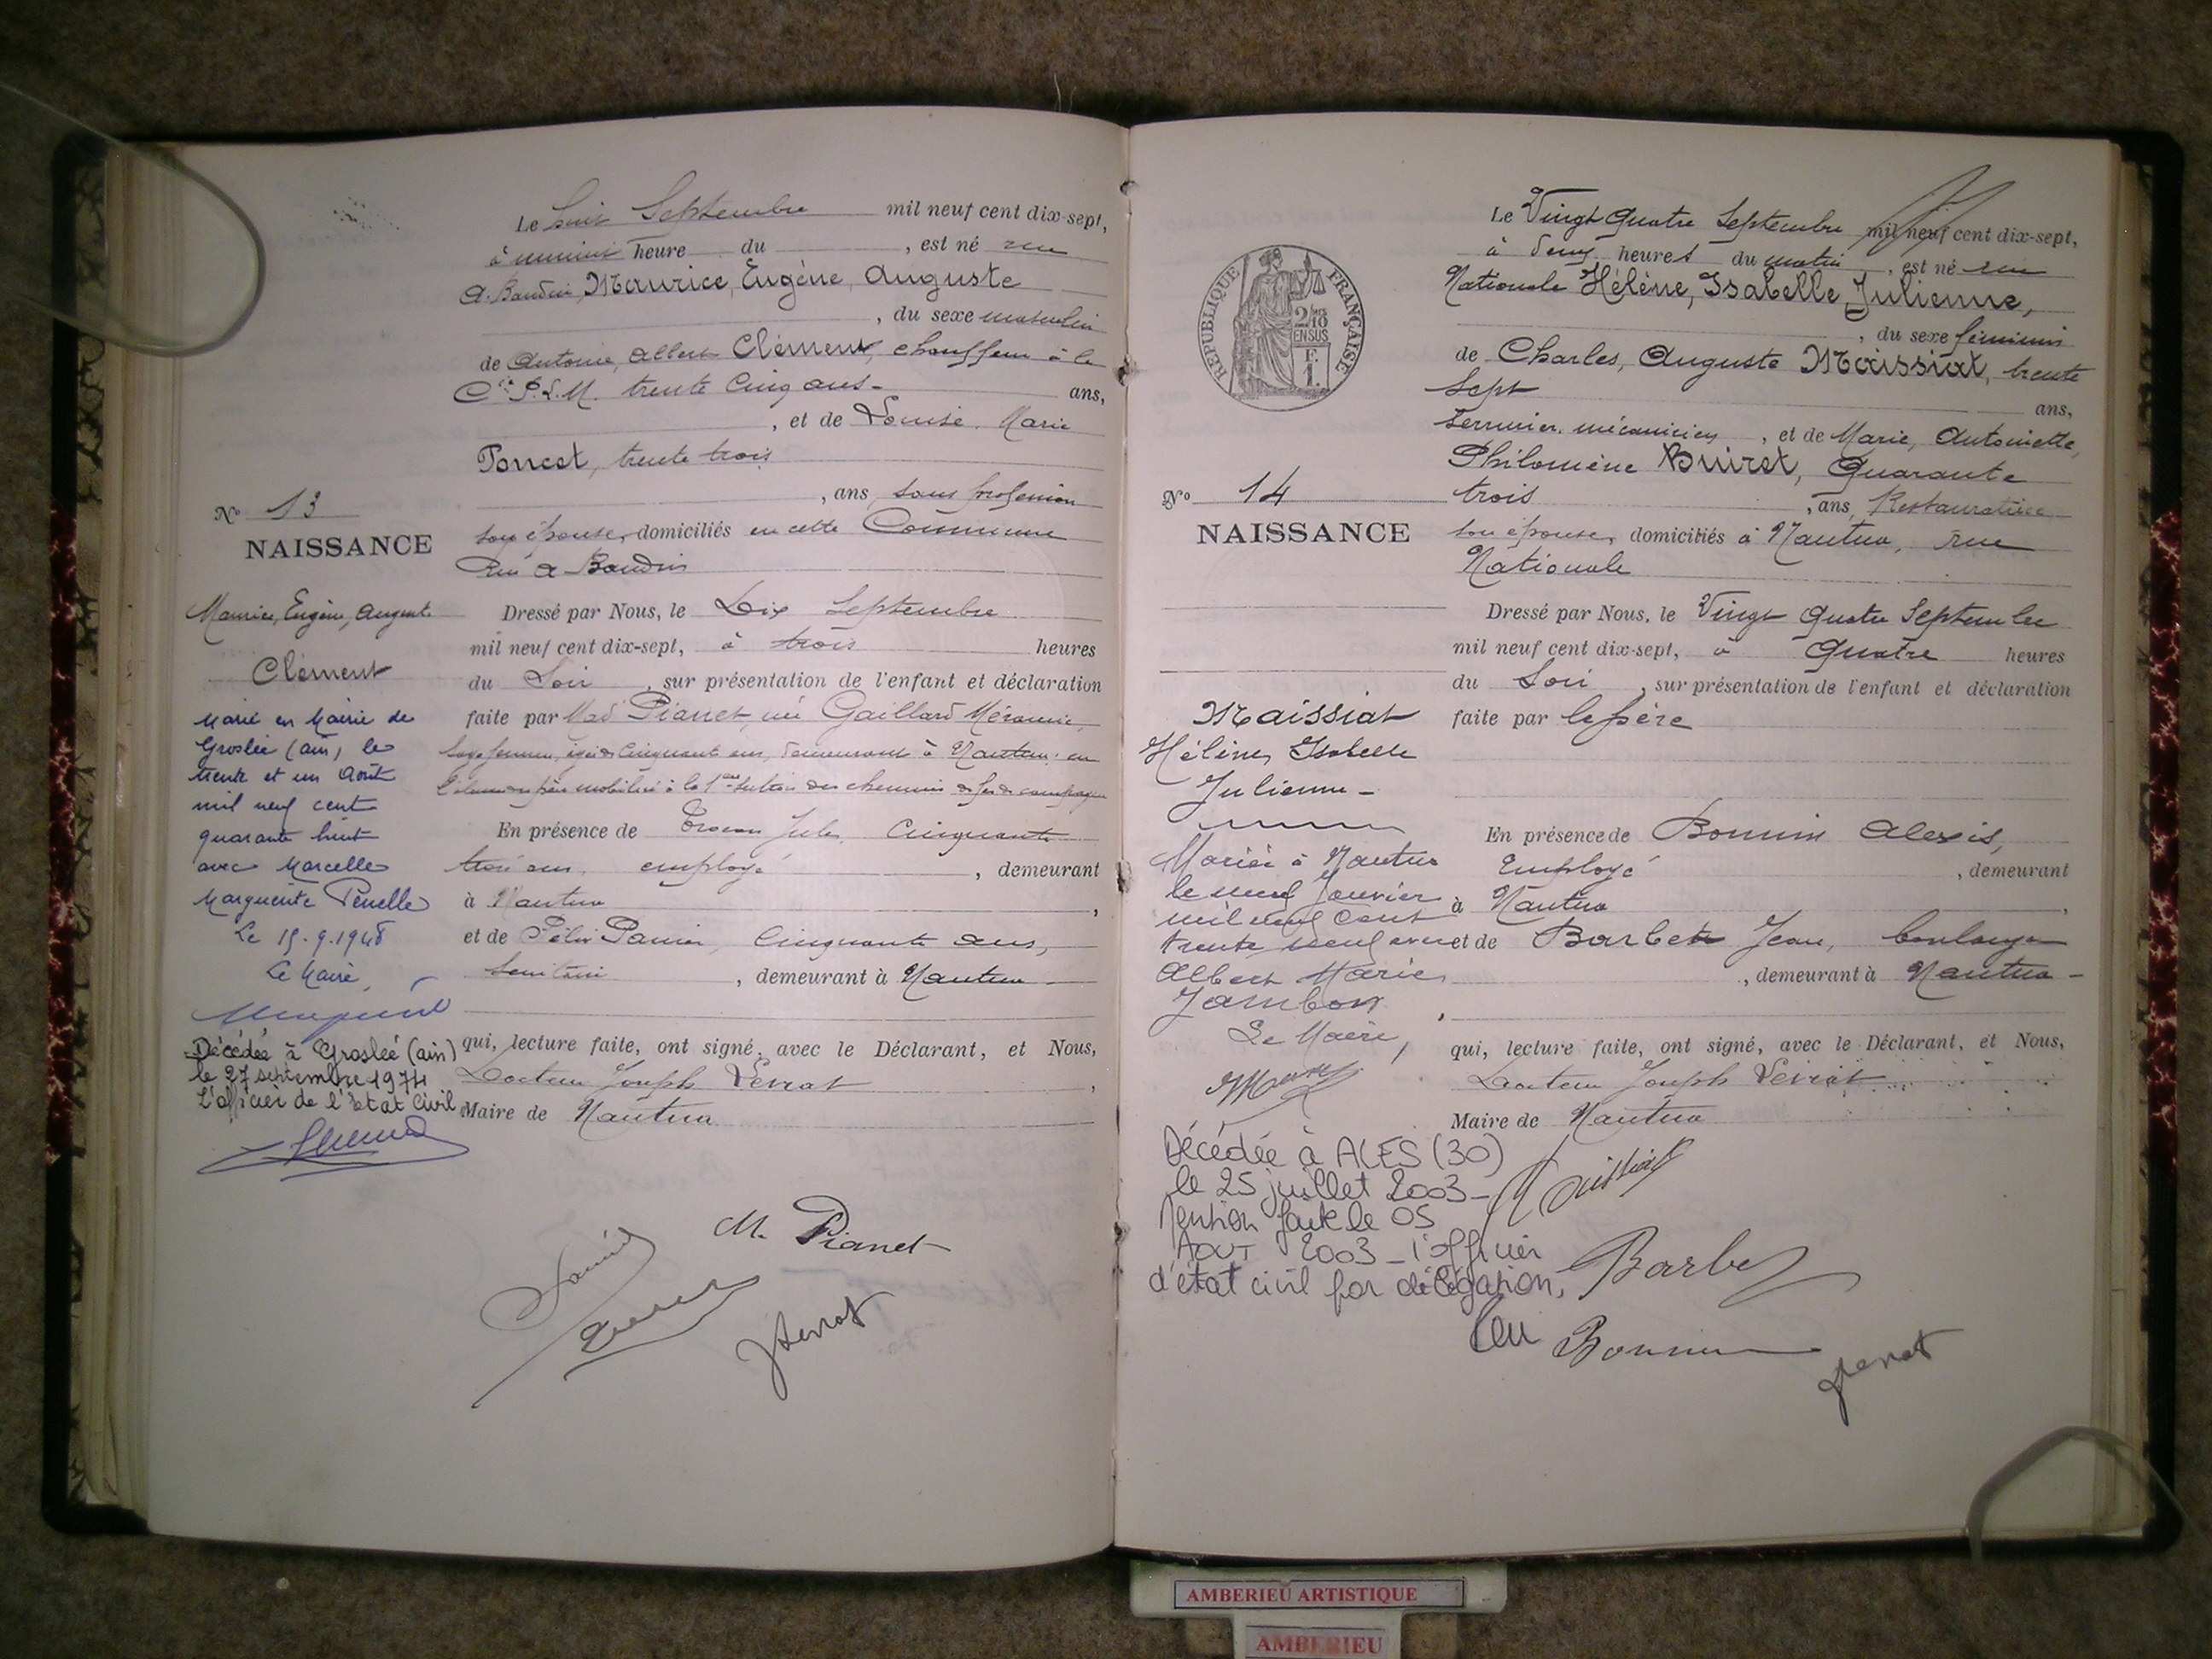 Le huit Septembre mil neuf cent dix-sept,
à minuit heure du , est né rue
A. Baudin, Maurice, Eugène, Auguste
, du sexe masculin
de Antoine, Albert Clément, chauffeur à la
Cie P.L.M. trente cinq ans- ans,
, et de Louise, Marie
Poncet, trente trois
, ans, sans profession
son épouse, domiciliés en cette Commune
Rue A Baudin
Dressé par Nous, le Dix Septembre
mil neuf cent dix-sept, à trois heures
du Soir , sur présentation de l'enfant et déclaration
faite par Mad Pianet, née Gaillard
Sage femme, âgée de Cinquante ans, demeurant à Nantua, en
l'absence du père mobilisé à la 1ère Section des chemins de fer de campagne
En présence de Jules, Cinquante
trois ans, employé , demeurant
à Nantua ,
et de Félix Panier, Cinquante ans,
, demeurant à Nantua
qui, lecture faite, ont signé, avec le Déclarant, et Nous,
Docteur Joseph Levrat ,
Maire de Nantua
M. Pianet
JLevrat
No 13
NAISSANCE
Maurice, Eugène, Auguste
Clément
Marié en Mairie de
Groslée (ain) le
trente et un Août
mil neuf cent
quarante huit
avec Marcelle
Marguerite Penelle
Le 15.9.1948
Le Maire,
Décédée à Groslée (ain)
le 27 septembre 1974
L'officier de l'Etat Civil
RÉPUBLIQUE FRANÇAISE
2/10
EN SUS
F.
1.
Le Vingt Quatre Septembre mil neuf cent dix-sept,
à deux heures du matin , est né rue
Nationale Hélène, Isabelle, Julienne,
, du sexe féminin
de Charles, Auguste Maissiat, trente
Sept ans,
Serrurier, mécanicien , et de Marie, Antoinette,
Philomène Buiret, Quarante
trois , ans, Restauratrice
son épouse, domiciliés à Nantua, rue
Nationale
Dressé par Nous, le Vingt Quatre Septembre
mil neuf cent dix-sept, à Quatre heures
du Soir , sur présentation de l'enfant et déclaration
faite par le père
En présence de Bonnin Alexis,
Employé , demeurant
à Nantua ,
et de Barbet Jean, boulanger
, demeurant à Nantua -
qui, lecture faite, ont signé, avec le Déclarant, et Nous,
Docteur Joseph Levrat
Maire de Nantua
Maissiat
Barbet
Bonnin
JLevrat
No 14
NAISSANCE
Maissiat
Hélène, Isabelle
Julienne -
Mariée à Nantua
le neuf Janvier
mil neuf cent
trente neuf avec
Albert Marie
Jambon
Le Maire,
Décédée à ALES (30)
le 25 juillet 2003 -
Mention faite le 05
AOUT 2003 - l'officier
d'état civil par délégation,
AMBERIEU ARTISTIQUE
AMBERIEU